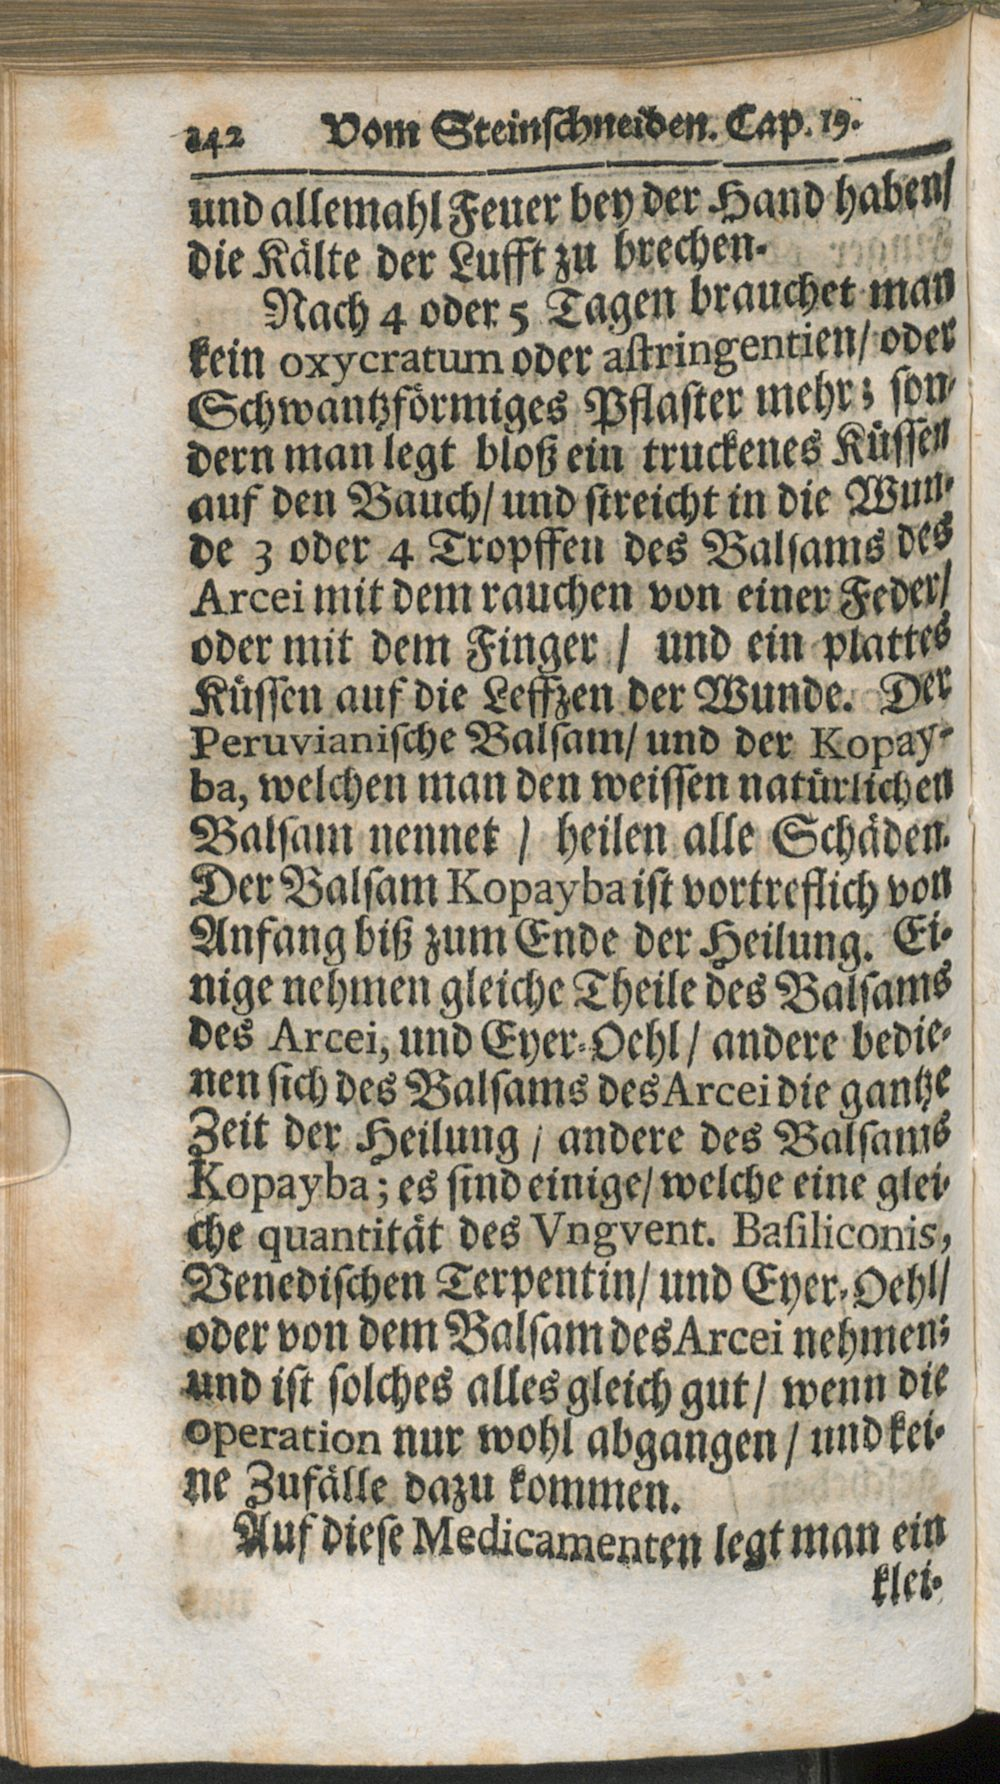 242 Vom Steinschneiden. Cap. 19.
und allemahl Feuer bey der Hand haben/
die Kälte der Lufft zu brechen.
Nach 4 oder 5 Tagen brauchet man
kein oxycratum oder astringentien/ oder
Schwantzförmiges Pflaster mehr; son-
dern man legt bloß ein truckenes Küssen
auf den Bauch/ und streicht in die Wun-
de 3 oder 4 Tropffen des Balsams des
Arcei mit dem rauchen von einer Feder/
oder mit dem Finger / und ein plattes
Küssen auf die Leffzen der Wunde. Der
Peruvianische Balsam/ und der Kopay-
ba, welchen man den weissen natürlichen
Balsam nennet / heilen alle Schäden.
Der Balsam Kopayba ist vortreflich von
Anfang biß zum Ende der Heilung. Ei-
nige nehmen gleiche Theile des Balsams
des Arcei, und Eyer-Oehl/ andere bedie-
nen sich des Balsams des Arcei die gantze
Zeit der Heilung / andere des Balsams
Kopayba; es sind einige/ welche eine glei-
che quantität des Vngvent. Basiliconis,
Venedischen Terpentin/ und Eyer-Oehl/
oder von dem Balsam des Arcei nehmen;
und ist solches alles gleich gut/ wenn die
operation nur wohl abgangen / und kei-
ne Zufälle dazu kommen.
Auf diese Medicamenten legt man ein
klei-